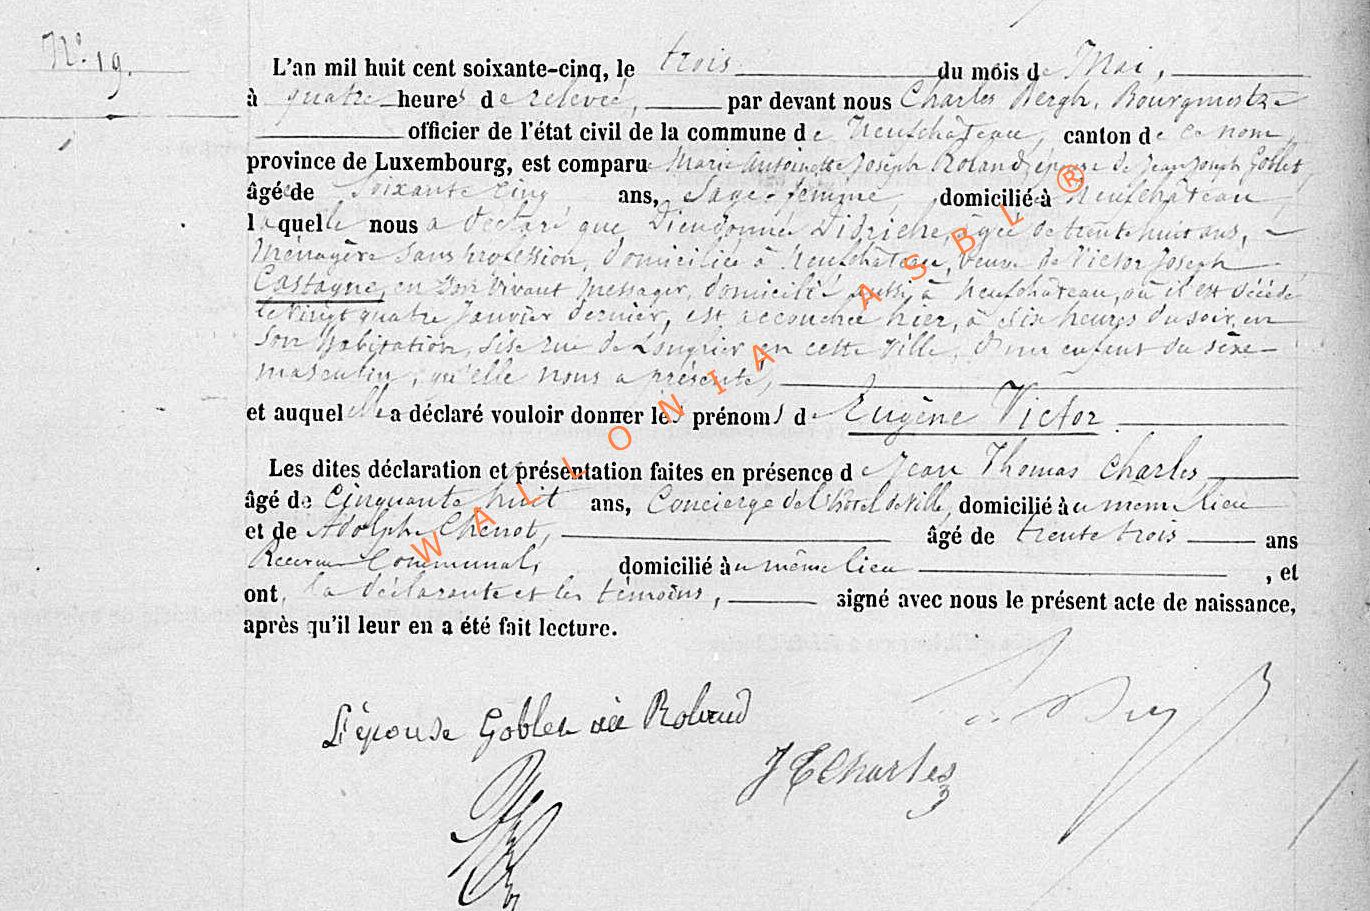 N° 19.
L'an mil huit cent soixante-cinq, le trois du mois de Mai,
à quatre heures de relevée, par devant nous Charles Bergh, Bourgmestre
officier de l'état civil de la commune de Neufchâteau, canton de ce nom,
province de Luxembourg, est comparue Marie Antoinette Joseph Roland, épouse de Jean Joseph Goblet,
âgée de soixante cinq ans, Sage-femme, domiciliée à Neufchâteau
laquelle nous a déclaré que Dieudonnée Didriche, âgée de trente huit ans,
Ménagère sans profession, domiciliée à Neufchâteau, veuve de Victor Joseph
Castagne, en son vivant messager, domicilié aussi à Neufchâteau, où il est décédé
le vingt quatre Janvier dernier, est accouchée hier, à dix heures du soir, en
son habitation, sise rue de Longlier en cette ville, d'un enfant du sexe
masculin, qu'elle nous a présenté,
et auquel elle a déclaré vouloir donner les prénoms de Eugène Victor
Les dites déclaration et présentation faites en présence de Jean Thomas Charles
âgé de Cinquante huit ans, Concierge de l'hôtel de Ville, domicilié à au même lieu
et de Adolphe Chenot, âgé de trente trois ans
Receveur Communal, domicilié à au même lieu , et
ont, la déclarante et les témoins, signé avec nous le présent acte de naissance,
après qu'il leur en a été fait lecture.
L'épouse Goblet née Roland
J T Charles
WALLONIA ASBL ®